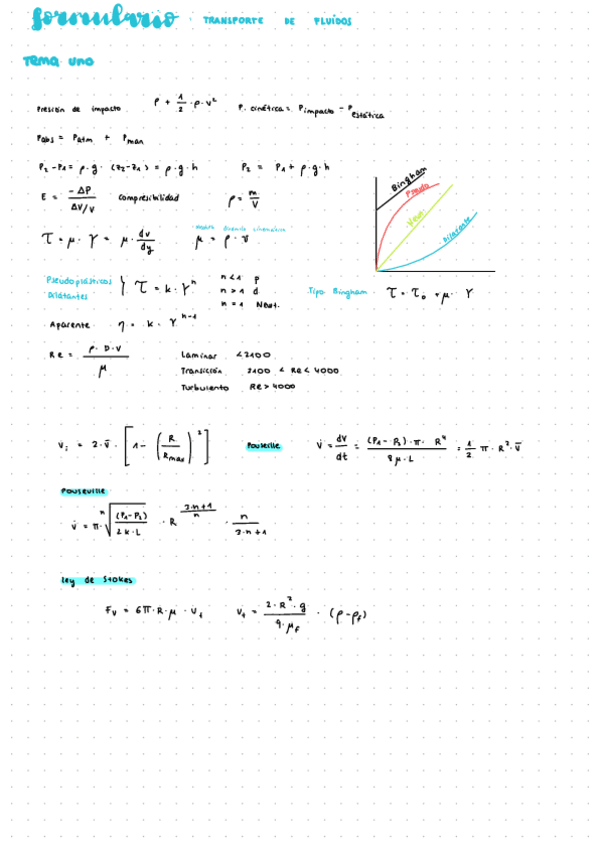 formulario · TRANSPORTE DE FLUÍDOS
Tema uno
Presión de impacto P + 1/2 · ρ · v² P. cinética = P impacto - P estática
Pabs = Patm + Pman
P₂ - P₁ = ρ · g · (z₂ - z₁) = ρ · g · h P₂ = P₁ + ρ · g · h
E = -ΔP / ΔV/V compresibilidad ρ = m/V
τ = μ · γ = μ · dv/dy μ = ρ · ν
Bingham
Pseudo
Newt.
Dilatante
Pseudoplásticos
Dilatantes } τ = k · γⁿ
n < 1 P
n > 1 d
n = 1 Newt.
Tipo Bingham τ = τ₀ + μ · γ
Aparente η = k · γⁿ⁻¹
Re = ρ · D · V / μ
Laminar < 2100
Transición 2100 < Re < 4000
Turbulento Re > 4000
Vᵢ = 2 · v̄ · [1 - (R / Rmax)²] Pouseille V̇ = dV/dt = (P₁ - P₂) · π · R⁴ / 8 μ · L = 1/2 π · R² · v̄
Pouseuille
V̇ = π · ⁿ√((P₁ - P₂) / 2 k · L) · R^(3·n+1 / n) · n / 3·n+1
Ley de Stokes
Fᵥ = 6π · R · μ · Vₜ Vₜ = 2 · R² · g / 9 · μf · (ρ - ρf)